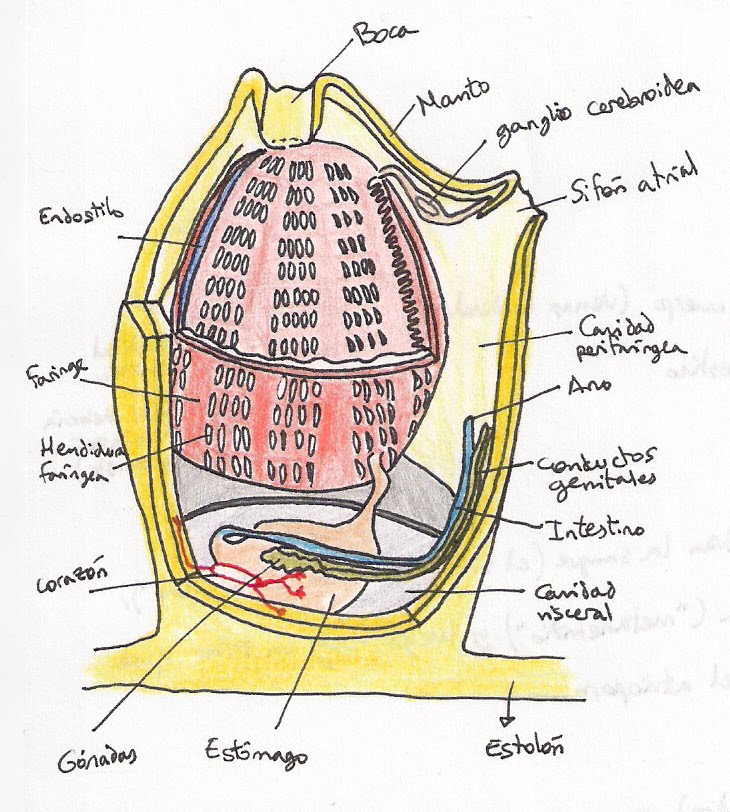 Boca
Manto
ganglio cerebroidea
Sifón atrial
Endostilo
Cavidad
perifaríngea
Faringe
Ano
Hendidura
faríngea
Conductos
genitales
Intestino
Corazón
Cavidad
visceral
Gónadas
Estómago
Estolón